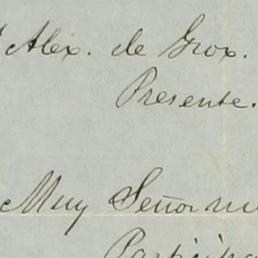 Alex. de Grox.
Presente.
Muy Señor mi
Participa